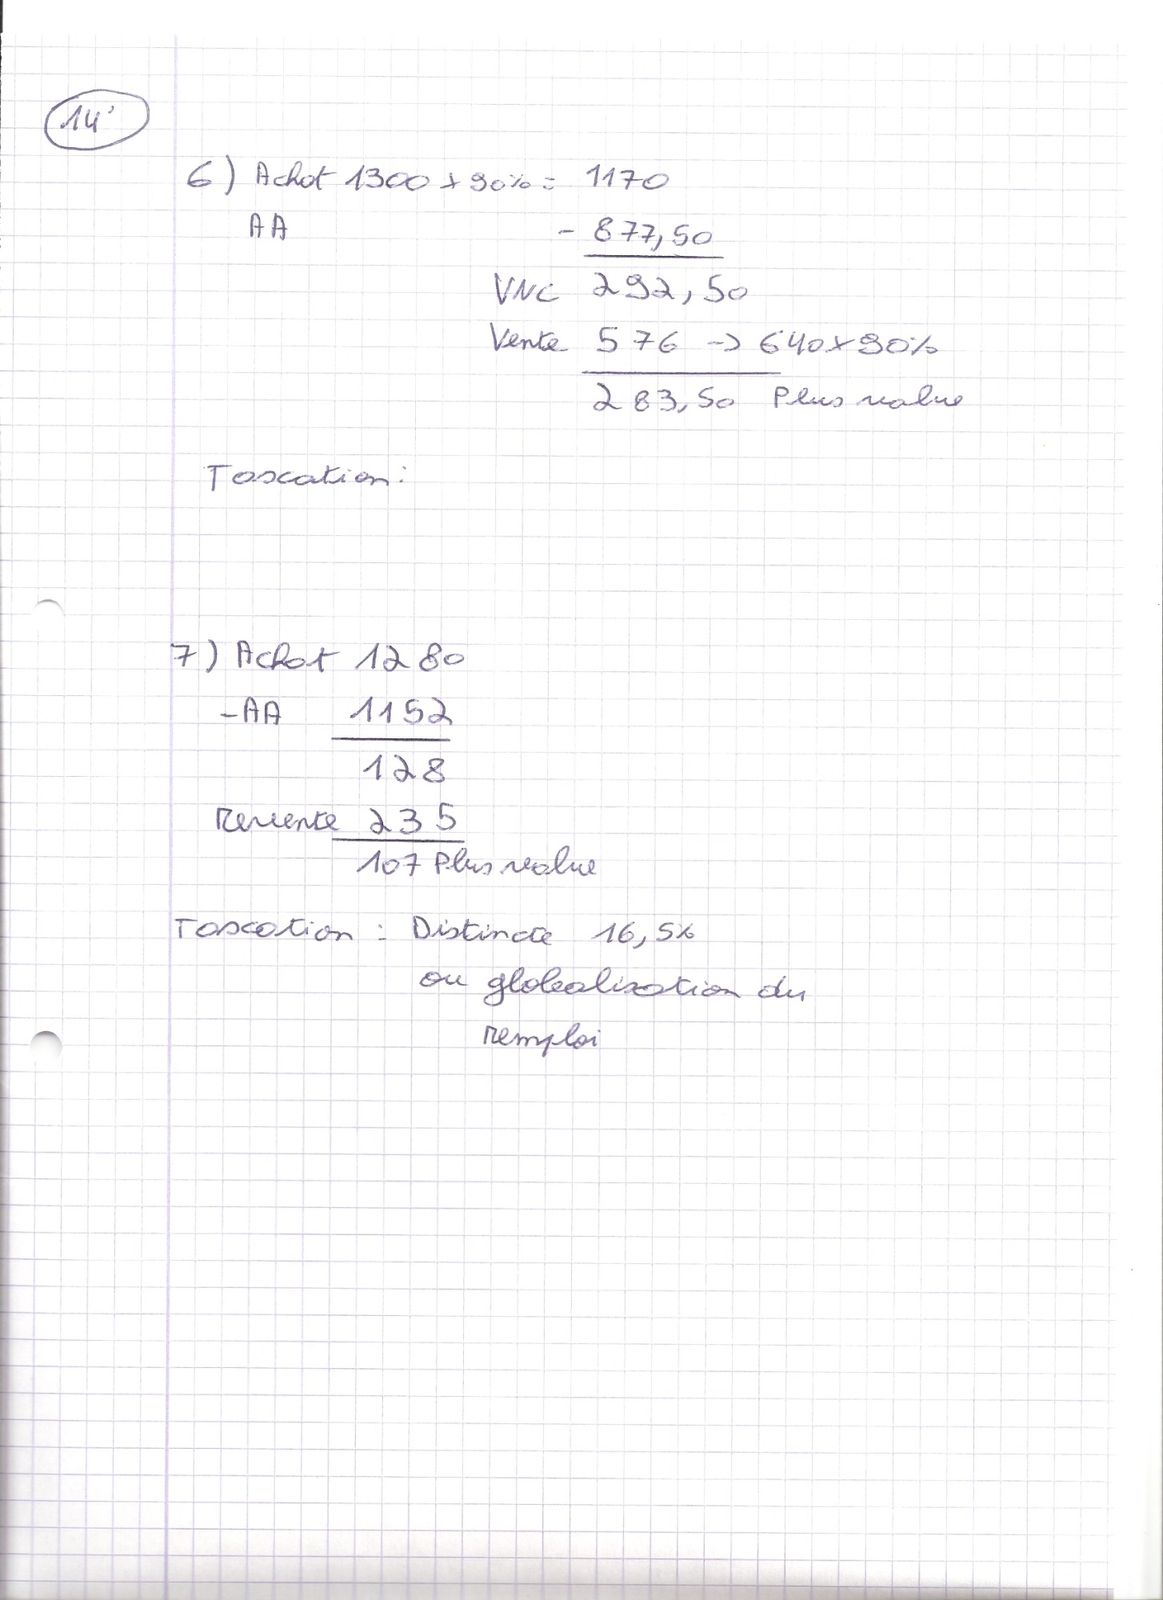 14'
6) Achat 1300 x 90% = 1170
AA - 877,50
VNC 292,50
Vente 576 -> 640 x 90%
283,50 Plus value
Taxation :
7) Achat 1280
- AA 1152
128
Revente 235
107 Plus value
Taxation : Distincte 16,5%
ou globalisation du
remploi